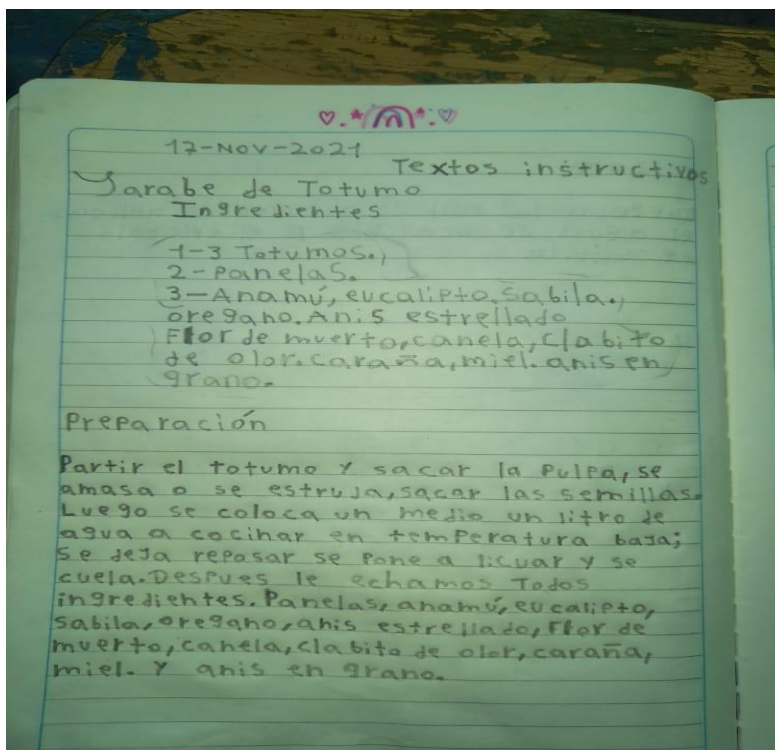 17-NOV-2021
Textos instructivos
Jarabe de Totumo
Ingredientes
1-3 Totumos.,
2-Panelas.
3-Anamú, eucalipto, Sabila.,
oregano. Anis estrellado
Flor de muerto, canela, clabito
de olor. caraña, miel. anis en
grano.
Preparación
Partir el totumo y sacar la pulpa, se
amasa o se estruja, sacar las semillas.
Luego se coloca un medio un litro de
agua a cocinar en temperatura baja;
se deja reposar se pone a licuar y se
cuela. Despues le echamos Todos
ingredientes. Panelas, anamú, eucalipto,
sabila, oregano, anis estrellado, Flor de
muerto, canela, clabito de olor, caraña,
miel. Y anis en grano.